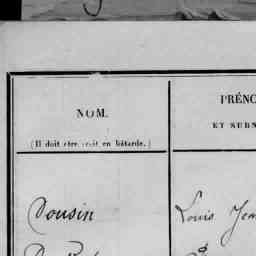 NOM.
(Il doit être écrit en bâtarde.)
PRÉNO
ET SURN
Cousin
Louis Jea